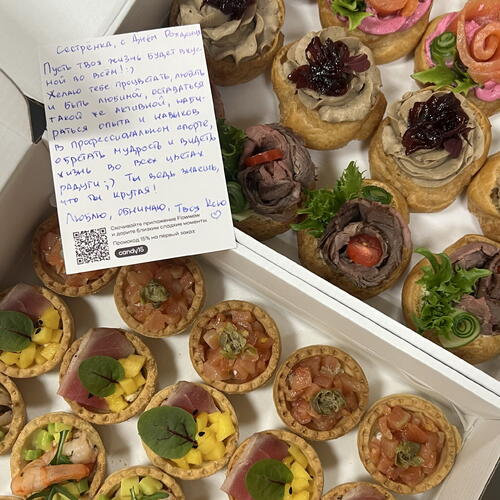 Сестрёнка, с Днём Рождения
Пусть твоя жизнь будет вкус-
ной во всём! :)
Желаю тебе процветать, любить
и быть любимой, оставаться
такой же активной, наби-
раться опыта и навыков
в профессиональном спорте,
обретать мудрость и видеть
жизнь во всех цветах
радуги ;) Ты ведь знаешь,
что ты крутая!
Люблю, обнимаю, Твоя Ксю
Скачивайте приложение Flowwow
и дарите близким сладкие моменты.
Промокод 15% на первый заказ:
candy15